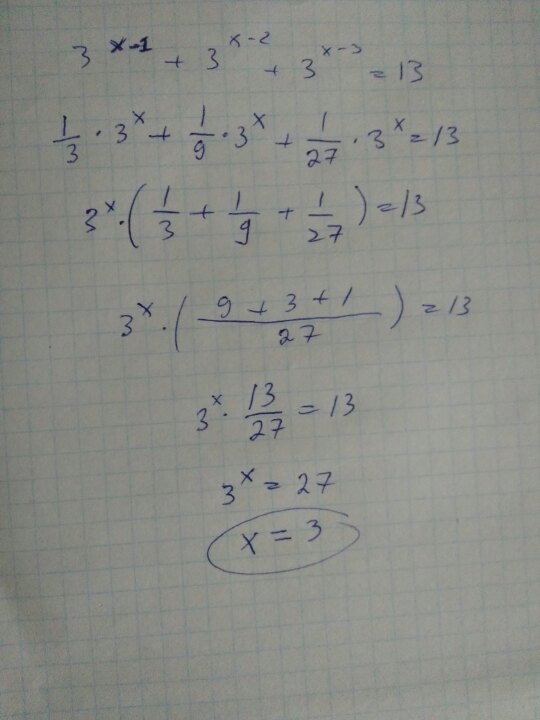 3^(x-1) + 3^(x-2) + 3^(x-3) = 13
1/3 · 3^x + 1/9 · 3^x + 1/27 · 3^x = 13
3^x · (1/3 + 1/9 + 1/27) = 13
3^x · ((9 + 3 + 1)/27) = 13
3^x · 13/27 = 13
3^x = 27
x = 3